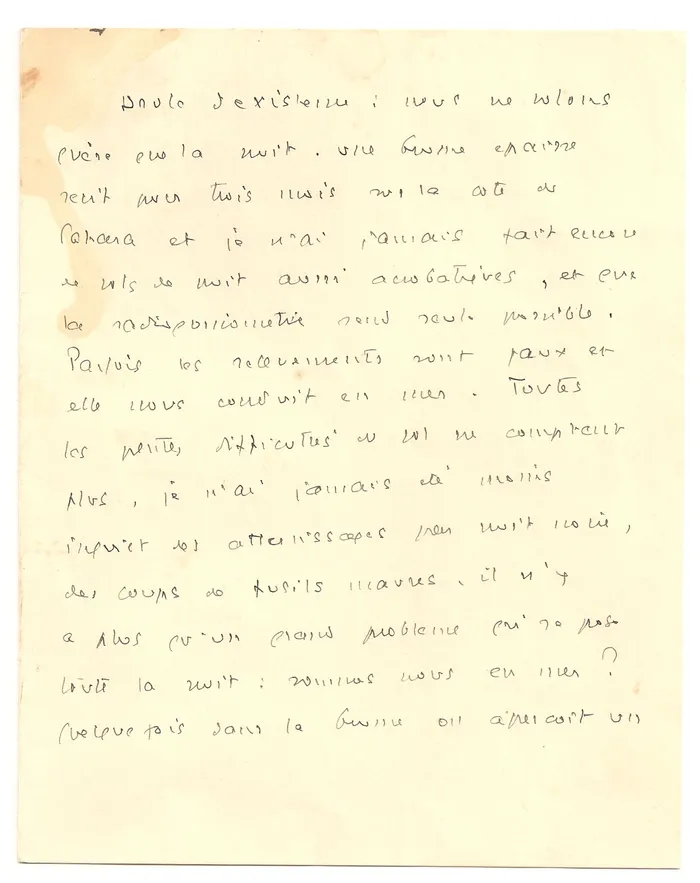 Drole d'existence : nous ne volons
guère que la nuit. une brume epaisse
sevit pour trois mois sur la cote du
Sahara et je n'ai jamais fait encore
de vols de nuit aussi acrobatiques, et que
la radiogoniometrie rend seule possible.
Parfois les relevements sont faux et
elle nous conduit en mer. Toutes
les petites difficultés du vol ne comptent
plus, je n'ai jamais été moins
inquiet des atterrissages par nuit noire,
des coups de fusils maures. il n'y
a plus qu'un grand probleme qui se pose
toute la nuit : sommes nous en mer ?
Quelque fois dans la brume on aperçoit un